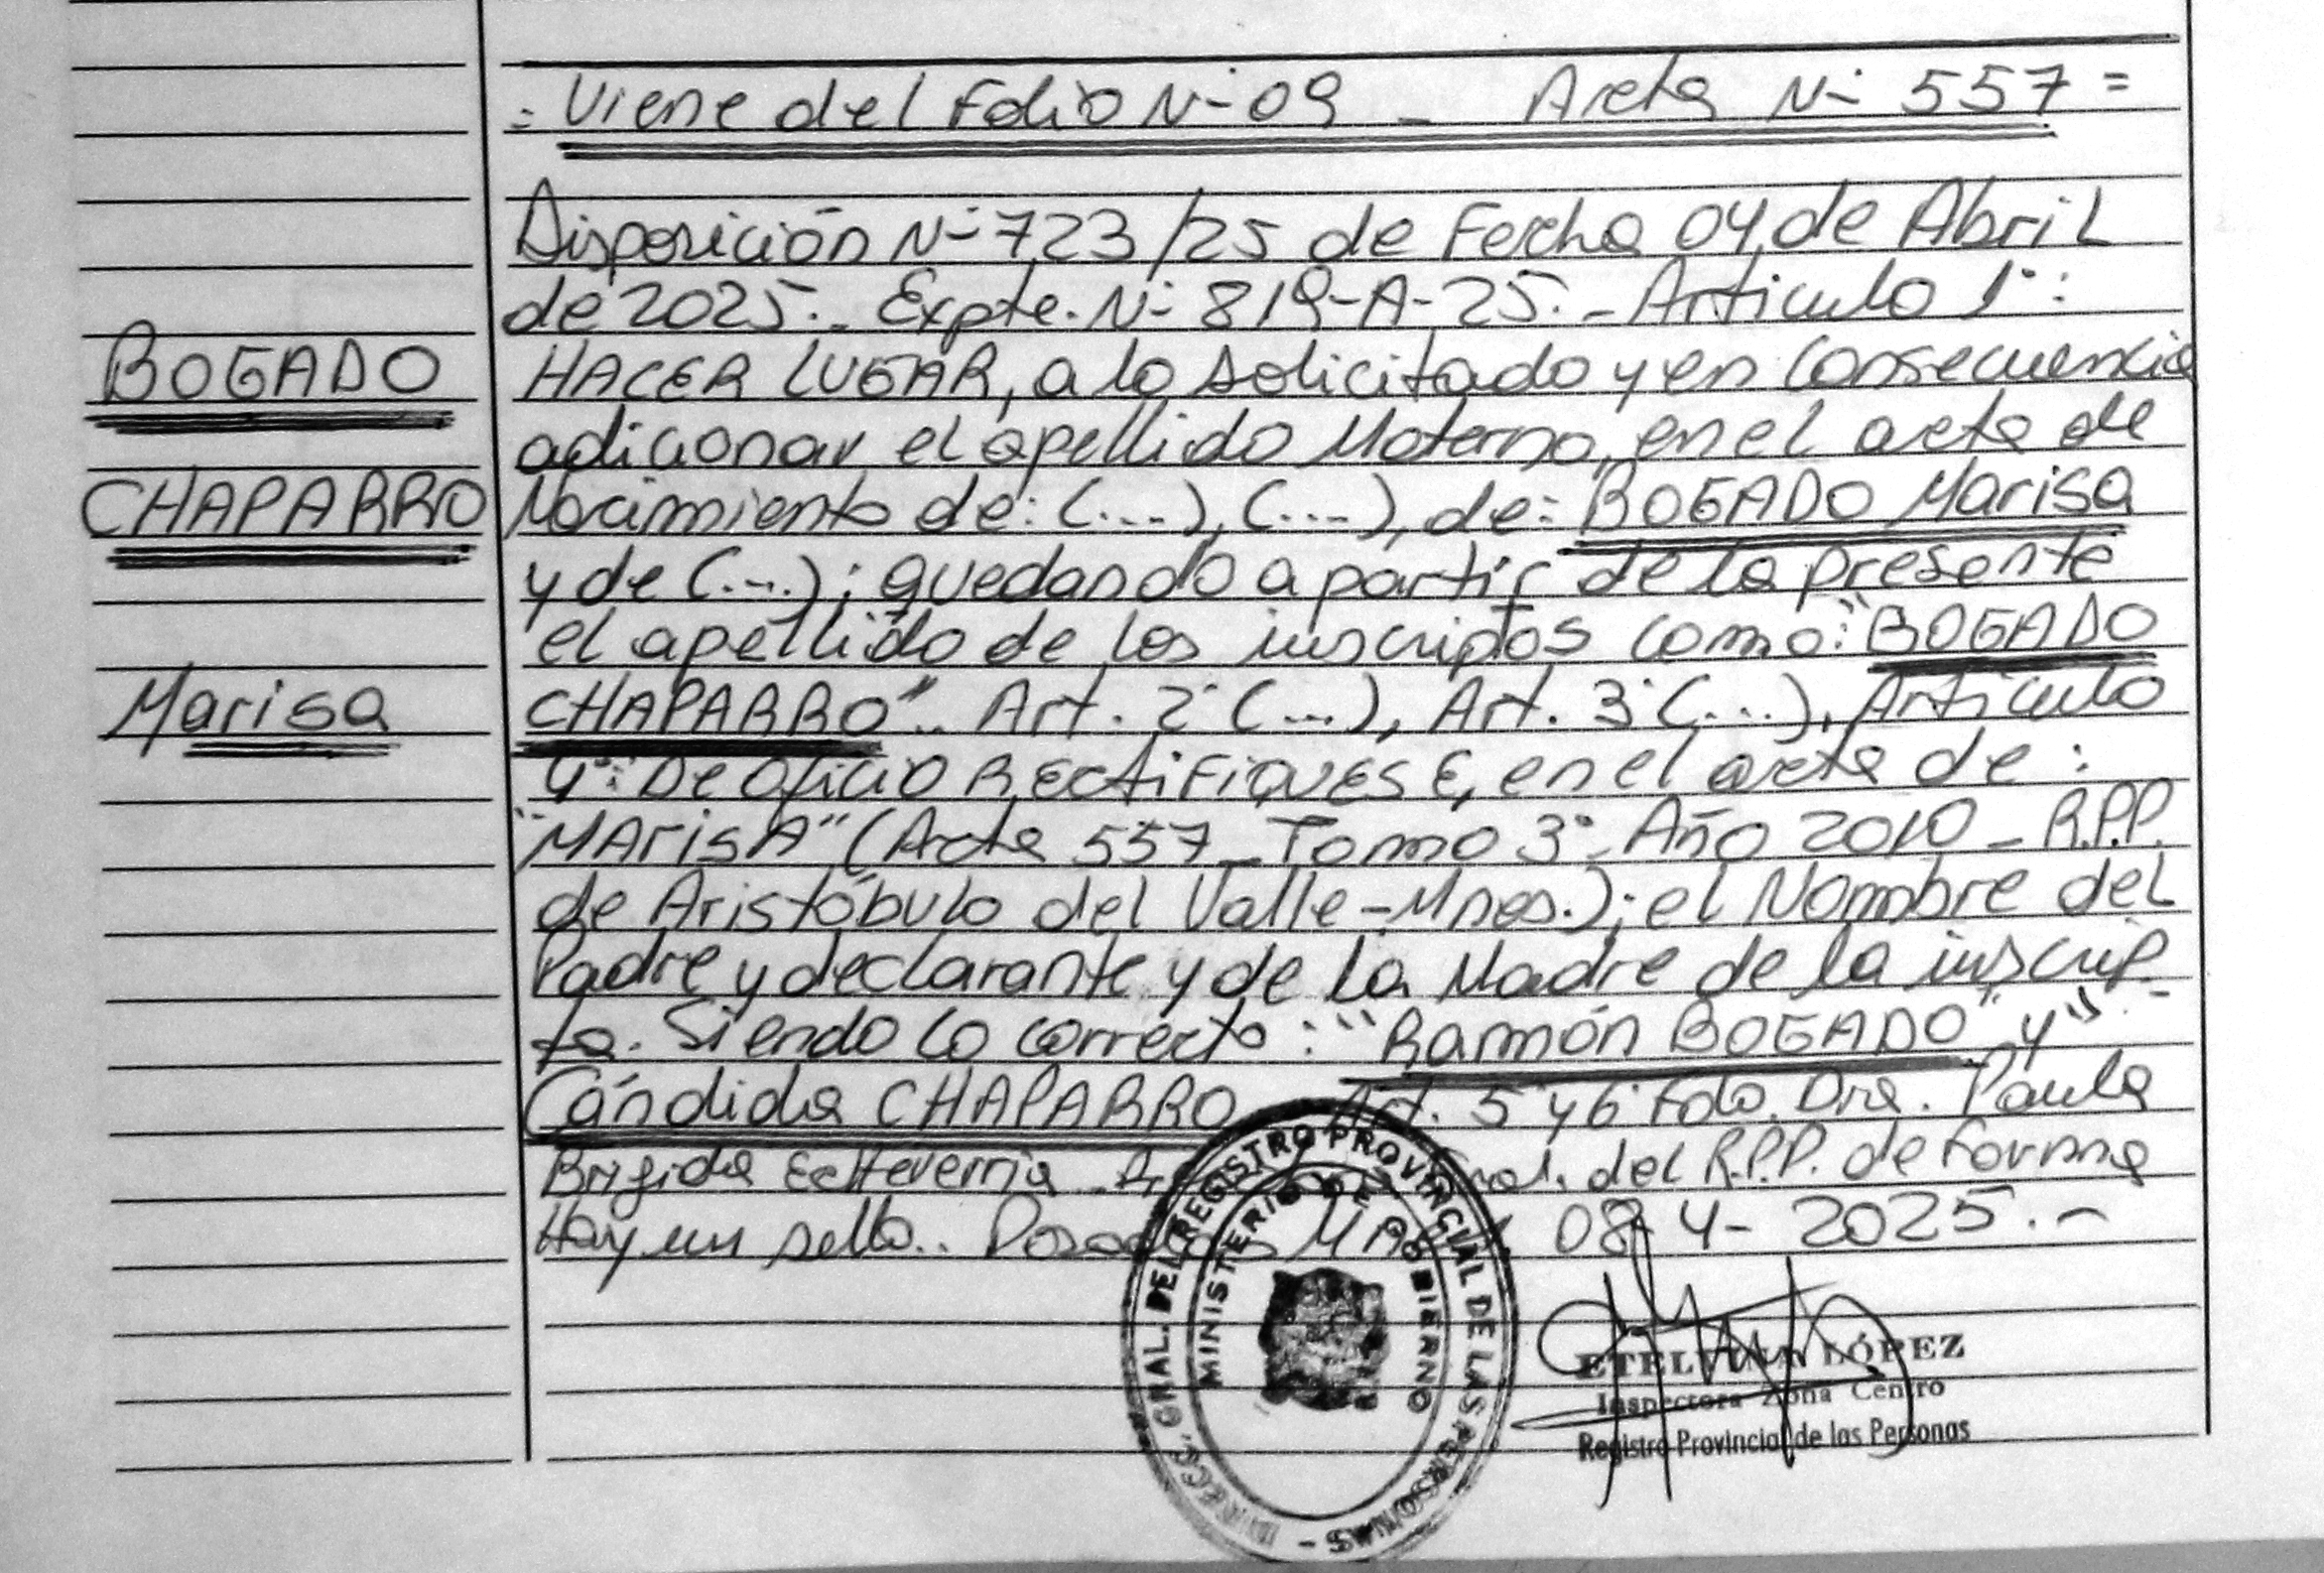 = Viene del Folio N° 09 _ Acta N° 557 =
Disposición N° 723/25 de Fecha 04 de Abril
de 2025._ Expte. N° 819-A-25._ Artículo 1°:
BOGADO
HACER LUGAR, a lo solicitado y en Consecuencia
adicionar el apellido Materno, en el acta de
CHAPARRO
Nacimiento de: (...), (...), de: BOGADO Marisa
y de (...); quedando a partir de la presente
el apellido de los inscriptos como: "BOGADO
Marisa
CHAPARRO".. Art. 2° (...), Art. 3° (...), Artículo
4°: De Oficio RECtiFIQUESE, en el acta de:
"MArisA" (Acta 557_Tomo 3°_Año 2010_R.P.P.
de Aristóbulo del Valle-Mnes.); el Nombre del
Padre y declarante y de la Madre de la inscrip-
ta. Siendo lo correcto: "Ramón BOGADO" y "
Cándida CHAPARRO Art. 5° y 6° Fdo. Dra. Paula
Brigida Echeverria del R.P.P. de Forma
Hay un sello.. Posadas 08-4-2025.-
DIRECC. GRAL. DEL REGISTRO PROVINCIAL DE LAS PERSONAS -
MINISTERIO DE GOBIERNO
ETELVINA LÓPEZ
Inspectora Zona Centro
Registro Provincial de las Personas